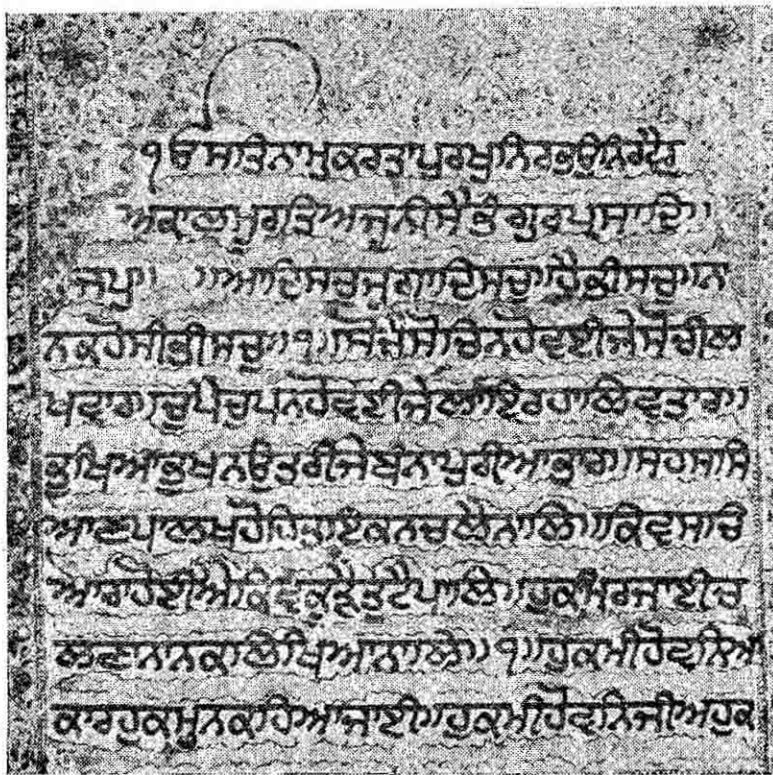 ੴ ਸਤਿਨਾਮੁਕਰਤਾਪੁਰਖੁਨਿਰਭਉਨਿਰਵੈਰੁ
ਅਕਾਲਮੂਰਤਿਅਜੂਨੀਸੈਭੰਗੁਰਪ੍ਰਸਾਦਿ॥
ਜਪੁ॥ ॥ਆਦਿਸਚੁਜੁਗਾਦਿਸਚੁ॥ਹੈਭੀਸਚੁ॥ਨ
ਨਕਹੋਸੀਭੀਸਚੁ॥੧॥ਸੋਚੈਸੋਚਿਨਹੋਵਈਜੇਸੋਚੀਲ
ਖਵਾਰ॥ਚੁਪੈਚੁਪਨਹੋਵਈਜੇਲਾਇਰਹਾਲਿਵਤਾਰ॥
ਭੁਖਿਆਭੁਖਨਉਤਰੀਜੇਬੰਨਾਪੁਰੀਆਭਾਰ॥ਸਹਸਸਿ
ਆਣਪਾਲਖਹੋਹਿਤਾਇਕਨਚਲੈਨਾਲਿ॥ਕਿਵਸਚਿ
ਆਰਾਹੋਈਐਕਿਵਕੂੜੈਤੁਟੈਪਾਲਿ॥ਹੁਕਮਿਰਜਾਈਚ
ਲਣਾਨਾਨਕਲਿਖਿਆਨਾਲਿ॥੧॥ਹੁਕਮੀਹੋਵਨਿਆ
ਕਾਰਹੁਕਮੁਨਕਹਿਆਜਾਈ॥ਹੁਕਮੀਹੋਵਨਿਜੀਅਹੁਕ